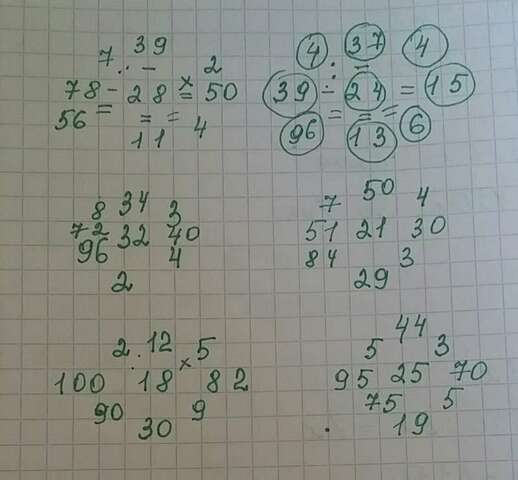 39
7 : − × 2
78 − 28 = 50
56 = = = 4
11
4 37 4
: −
39 − 24 = 15
96 = = = 6
13
8 34 3
72 32 40
96 4
2
7 50 4
51 21 30
84 3
29
2 : 12 × 5
100 18 82
90 9
30
44
5 3
95 25 70
75 5
19